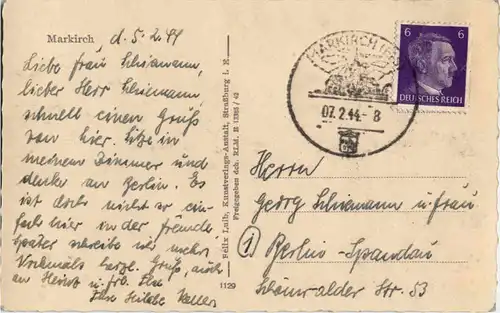 Markirch d. 5.2.44
Liebe Frau Schiemann,
lieber Herr Schiemann,
schnell einen Gruß
von hier. Sitze in
meinem Zimmer und
denke an Berlin. Es
ist doch nicht so ein-
fach hier in der Fremde
Später schreibe ich mehr.
Nochmals herzl. Gruß, auch
an Heinz und Frl. Ilse
Ihre Hilde Keller
Felix Luib, Kunstverlags-Anstalt, Straßburg i. E.
Freigegeben dch. RLM. B 11305/42
1129
MARKIRCH
07.2.44.-8
6 6
DEUTSCHES REICH
Herrn
Georg Schiemann u. Frau
1 Berlin-Spandau
Schönwalder Str. 53